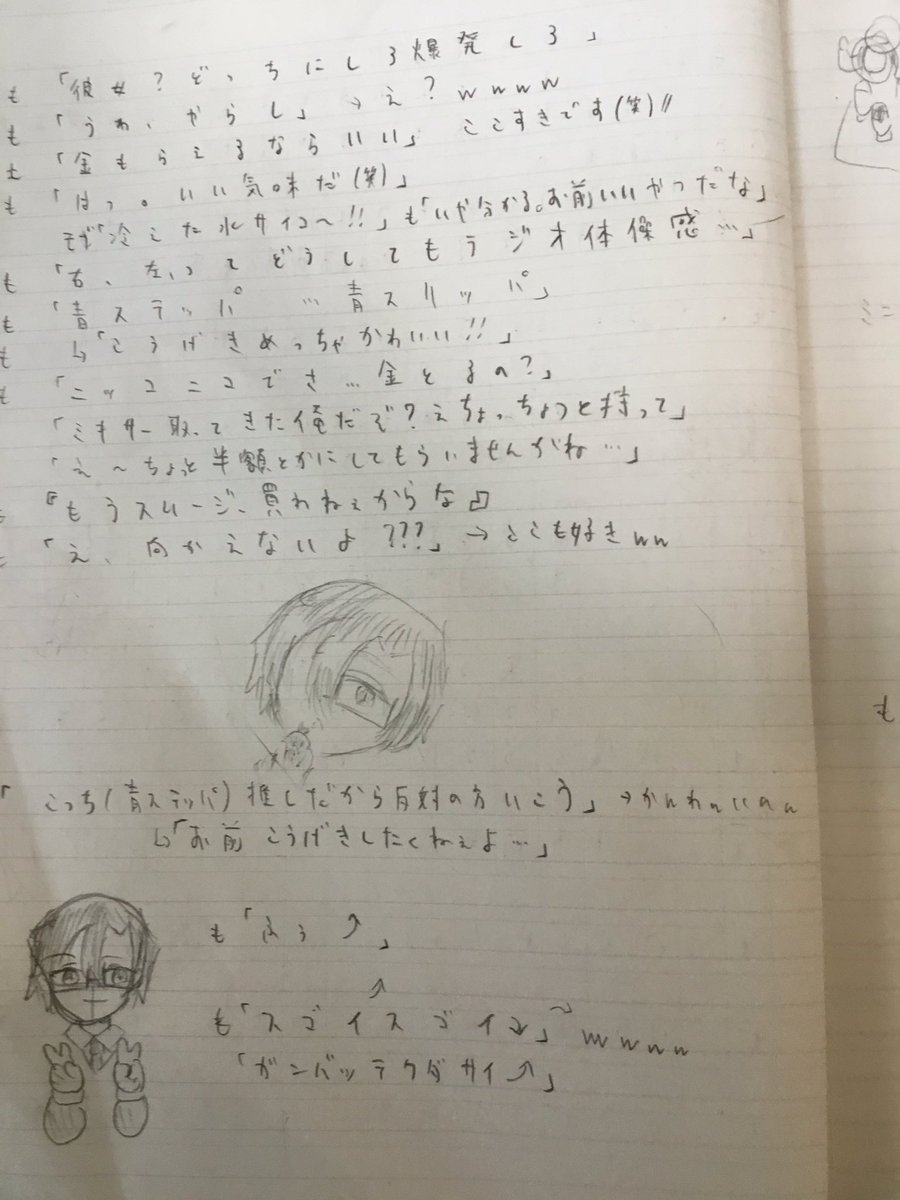 も「彼女？どっちにしろ爆発しろ」
も「うわ、からし」→え？wwww
も「金もらえるならいい」ここすきです(笑)//
も「はっ。いい気味だ(笑)」
モブ「冷えた水サイコ〜!!」も「いや分かる。お前いいやつだな」
も「右、左、ってどうしてもラジオ体操感…」
も「青ステッパ …青スリッパ」
も ↳「こうげきめっちゃかわいい!!」
も「ニッコニコでさ…金とるの？」
「ミキサー取ってきた俺だぞ？えちょっちょっと持って」
「え〜ちょっと半額とかにしてもらいませんかね…」
も『もうスムージー買わねぇからな』
も「え、向かえないよ???」→ここも好きww
「こっち(青ステッパ)推しだから反対の方いこう」→かわいいww
↳「お前こうげきしたくねぇよ…」
も「ふぅ↗」
も「スゴイスゴイ」wwww
「ガンバッテクダサイ↗」
ミニ
も